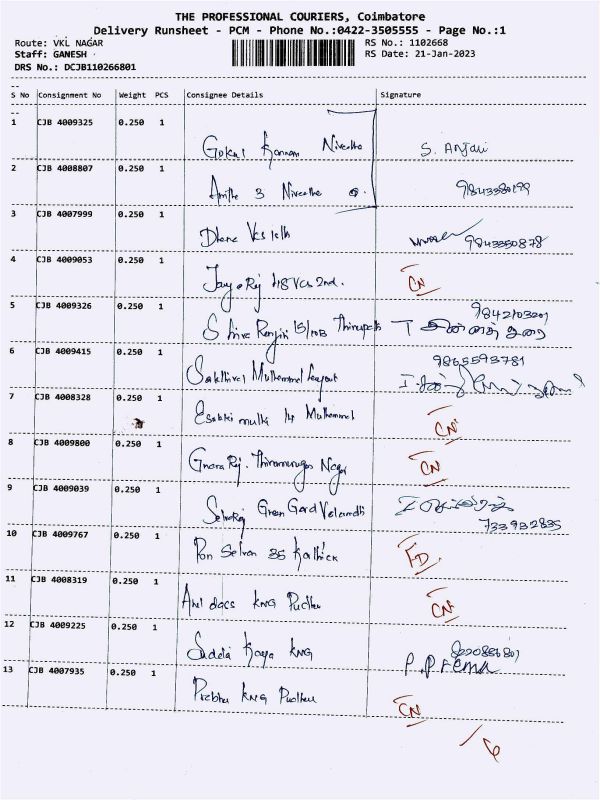 THE PROFESSIONAL COURIERS, Coimbatore
Delivery Runsheet - PCM - Phone No.:0422-3505555 - Page No.:1
Route: VKL NAGAR RS No.: 1102668
Staff: GANESH RS Date: 21-Jan-2023
DRS No.: DCJB110266801
S No Consignment No Weight PCS Consignee Details Signature
1 CJB 4009325 0.250 1 Gokul Kannan Nivedha S. Anjali
2 CJB 4008807 0.250 1 3 Nivedha
3 CJB 4007999 0.250 1 9843350878
4 CJB 4009053 0.250 1 Jaya Raj 418 VCS 2nd. CN
5 CJB 4009326 0.250 1 Shiva Ranjini 15/10B 9842103201
6 CJB 4009415 0.250 1 Sakthivel Layout 9865593781
7 CJB 4008328 0.250 1 14 CN
8 CJB 4009800 0.250 1 Gnana Raj. Thirumurugan Nagar CN
9 CJB 4009039 0.250 1 Selvaraj Green Gard 733932835
10 CJB 4009767 0.250 1 Pon Selvan 35 Karthick FD.
11 CJB 4008319 0.250 1 KNG Pudhur CN
12 CJB 4009225 0.250 1 KNG
13 CJB 4007935 0.250 1 Prabhu KNG Pudhur CN